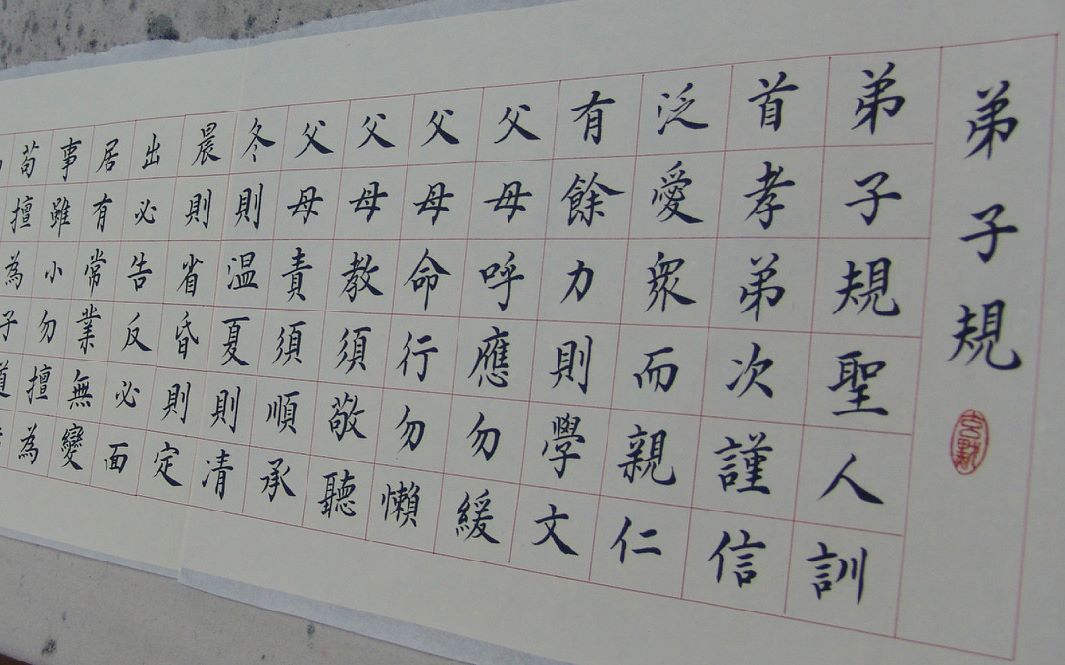 弟子規
弟子規聖人訓
首孝弟次謹信
泛愛眾而親仁
有餘力則學文
父母呼應勿緩
父母命行勿懶
父母教須敬聽
父母責須順承
冬則温夏則凊
晨則省昏則定
出必告反必面
居有常業無變
事雖小勿擅為
苟擅為子道